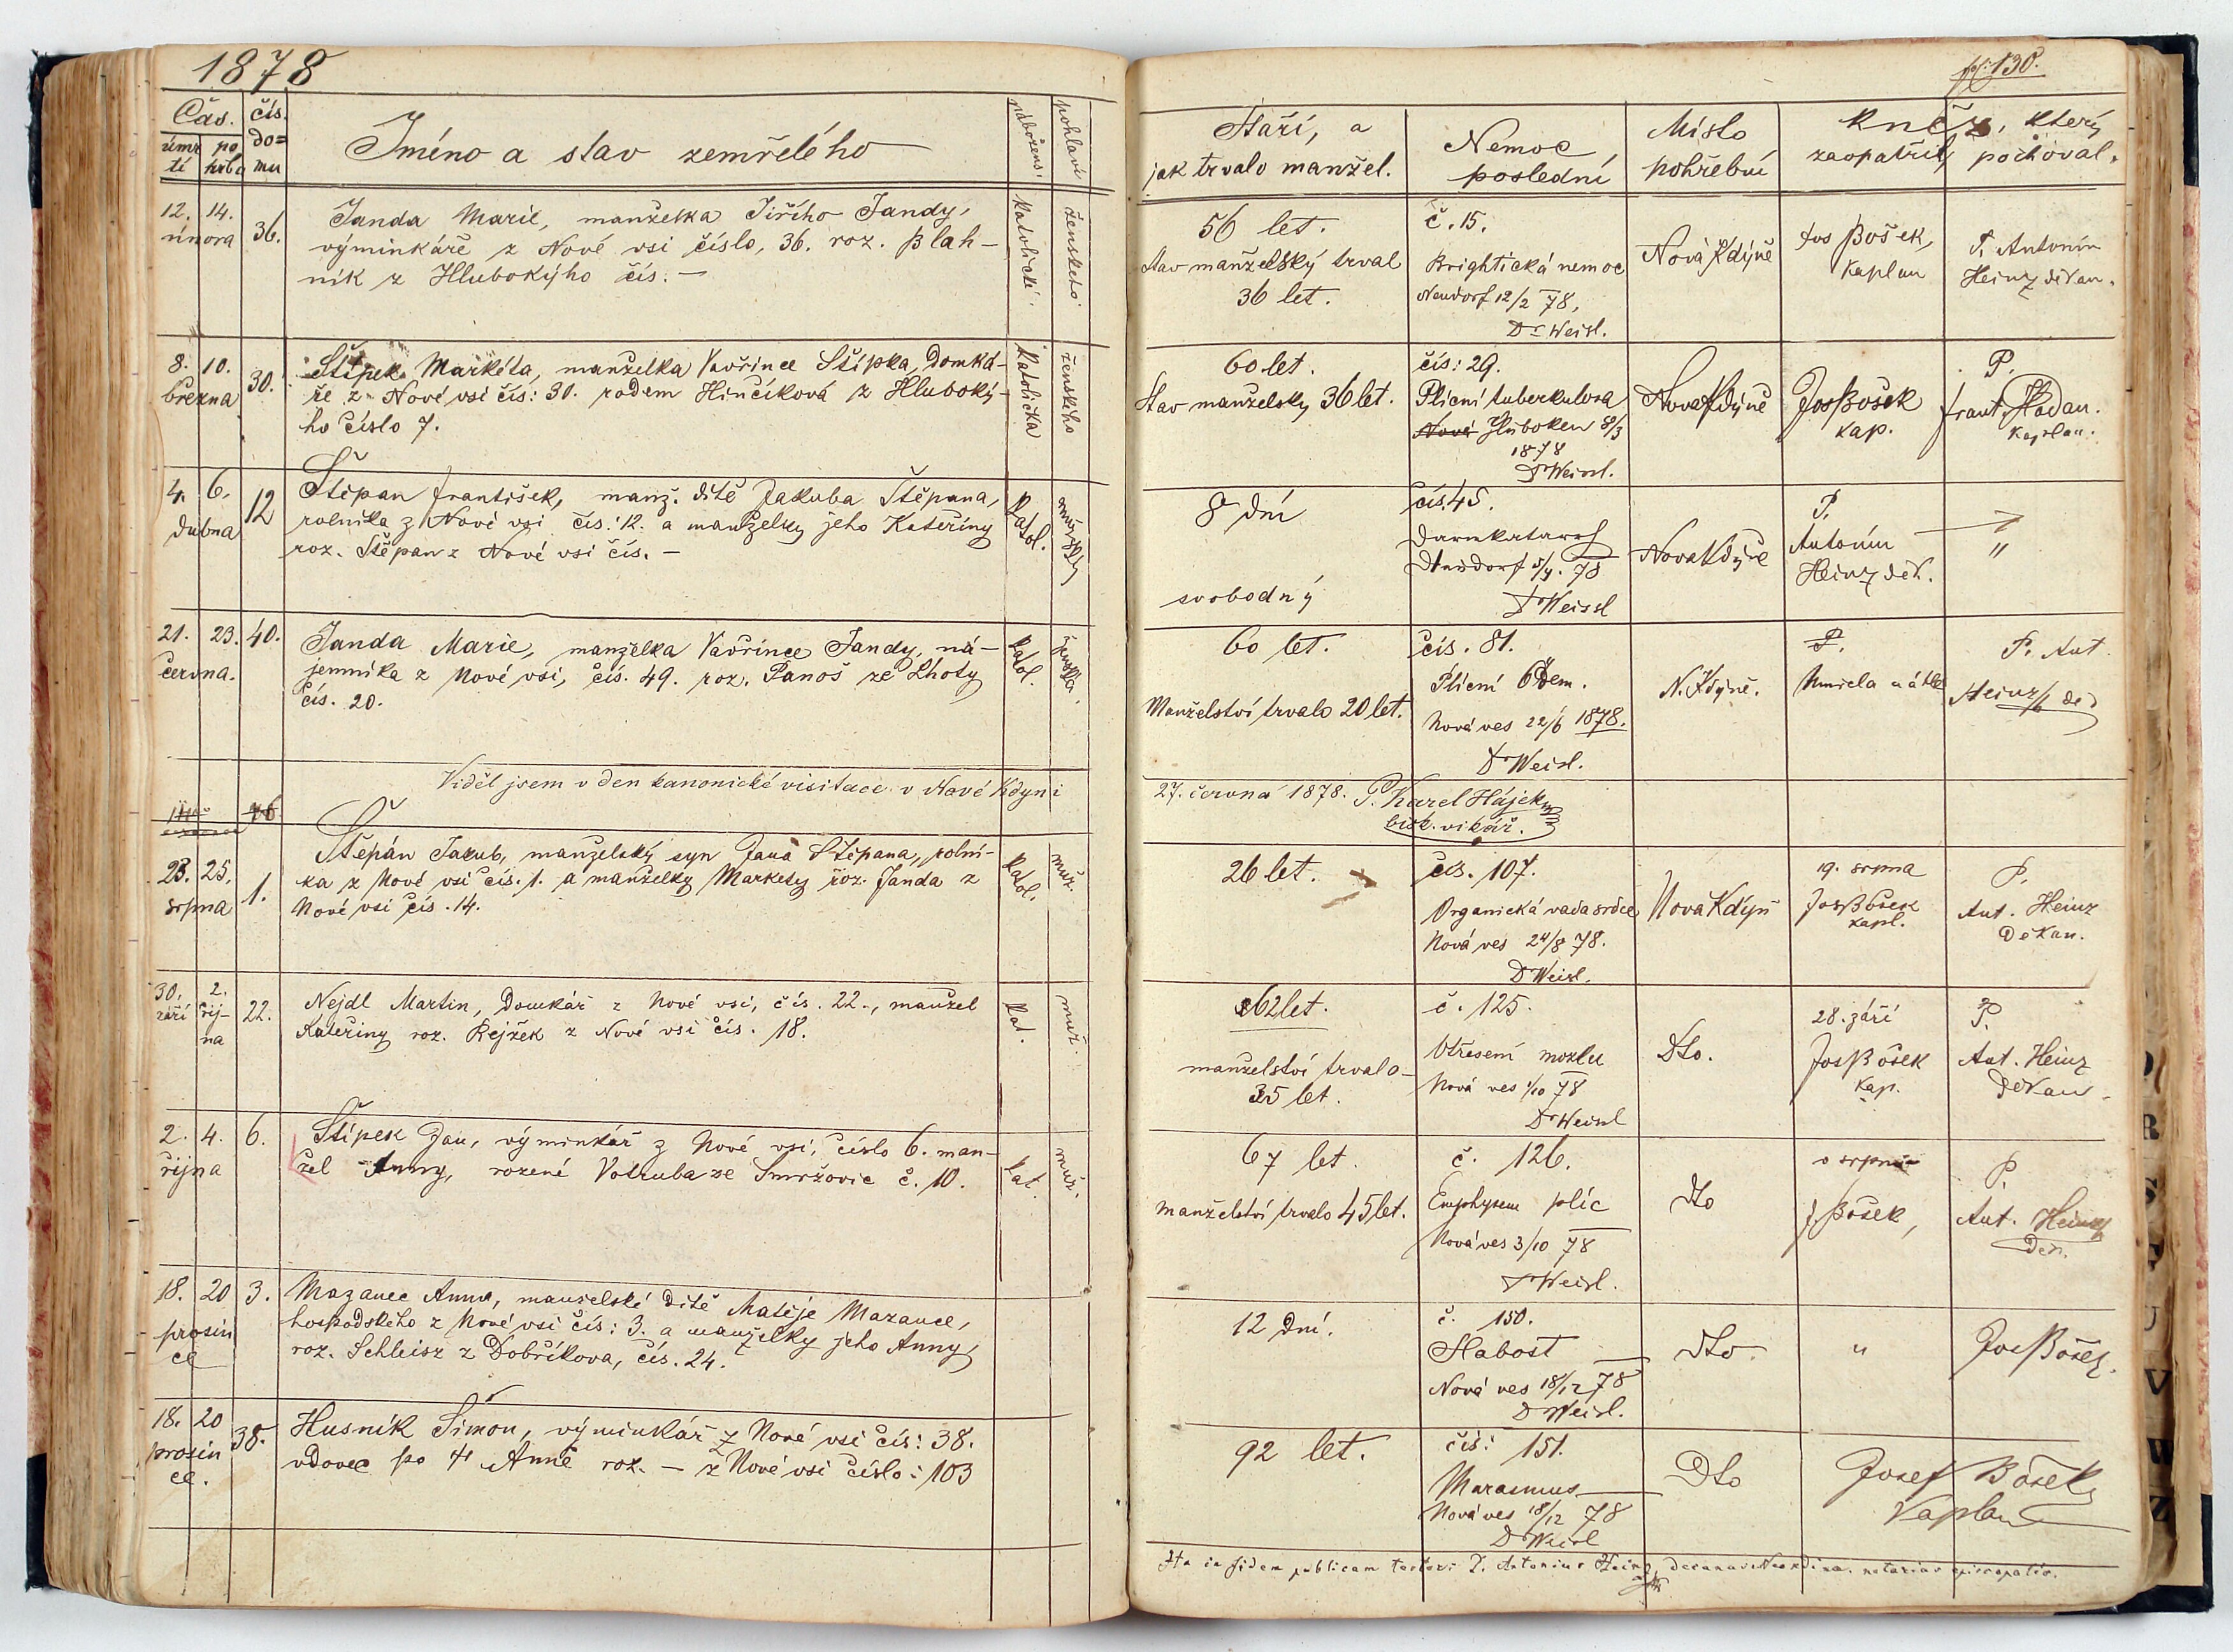 1878
Čas. čís.
úmr po do=
tí hřbu mu
Jméno a stav zemřelého
nábožens.
pohlaví
12. 14.
února
36.
Janda Marie, manželka Jiřího Jandy,
výminkáře z Nové vsi číslo, 36. roz. Blah-
ník z Hlubokýho čís. —
katolické
ženského
8. 10.
března
30.
Štípek Markéta, manželka Vavřince Štípka, Domká-
ře z Nové vsi čís: 30. rodem Hinčíková z Hluboký-
ho číslo 7.
katolička
ženského
4. 6.
dubna
12
Štěpan František, manž. dítě Jakuba Štěpana,
rolníka z Nové vsi čís.: 12. a manželky jeho Kateřiny
roz. Štěpan z Nové vsi čís. —
katol.
mužský
21. 23.
června.
40.
Janda Marie, manželka Vavřince Jandy, ná-
jemníka z Nové vsi, čís. 49. roz. Panoš ze Lhoty
čís. 20.
katol.
ženská.
Viděl jsem v den kanonické visitace v Nové Kdyni
46
23. 25.
srpna
1.
Štěpán Jakub, manželský syn Jana Štěpana, rolní-
ka z Nové vsi čís. 1. a manželky Markety roz. Janda z
Nové vsi čís. 14.
katol.
muž.
30. 2.
září říj-
na
22.
Nejdl Martin, Domkář z Nové vsi, čís. 22., manžel
Kateřiny roz. Rejžek z Nové vsi čís. 18.
kat.
muž.
2. 4.
října
6.
Štípek Jan, výminkář z Nové vsi, číslo 6. man-
žel Anny, rozené Votruba ze Smržovic č. 10.
kat.
muž.
18. 20
prosin
ce
3.
Mazanec Anna, manželské dítě Matěje Mazance,
hospodského z Nové vsi čís: 3. a manželky jeho Anny,
roz. Schleisz z Dobříkova, čís. 24.
18. 20
prosin
ce.
38.
Husník Šimon, výminkář z Nové vsi čís: 38.
vdovec po † Anně roz. — z Nové vsi číslo: 103
130.
Stáří, a
jak trvalo manžel.
Nemoc
poslední
Místo
pohřební
kněz, který
zaopatřil, pochoval.
56 let.
Stav manželský trval
36 let.
č. 15.
Brightická nemoc
Neudorf 12/2 78,
Dr Weisl.
Nová Kdyně
Jos Bošek,
Kaplan
P. Antonín
Heinz děkan.
60 let.
Stav manželsky 36 let.
čís: 29.
Plicní tuberkulosa
Nová Hluboken 8/3
1878
Dr Weissl.
Nová Kdyně
Jos Bošek
kap.
P.
Frant. Hodan.
Kaplan.
8 dní
svobodný
čís. 45.
Darmkatarrh
Neudorf 5/4. 78
Dr Weissl
Nova Kdyně
P.
Antonín
Heinz děk.
"
60 let.
Manželství trvalo 20 let.
čís. 81.
Plicní Ödem.
Nová ves 22/6 1878.
Dr Weisl.
N. Kdyně.
P.
Umřela náhle
P. Ant.
Heinz děk
27. června 1878. P. Karel Hájek
bisk. vikář.
26 let.
čís. 107.
Organická vada srdce
Nová ves 24/8 78.
Dr Weisl.
Nova Kdyň
19. srpna
Jos Bošek
kapl.
P.
Ant. Heinz
Děkan.
62 let.
manželství trvalo-
35 let.
č. 125.
Otřesení mozku
Nová ves 1/10 78
Dr Weissl
Dto.
28. září
Jos Bošek
kap.
P.
Ant. Heinz
Děkan.
67 let.
manželství trvalo 45 let.
č. 126.
Emphysem plic
Nová ves 3/10 78
Dr Weisl.
Dto
v srpnu
J. Bošek,
P.
Ant. Heinz
Děk.
12 Dní.
č. 150.
Slabost
Nová ves 18/12 78
Dr Weisl.
Dto.
"
Jos Bošek.
92 let.
čís: 151.
Marasmus
Nová ves 18/12 78
Dr Weisl
Dto
Josef Bošek
Kaplan
Ita in fidem publicam testor: P. Antonius Heinz, decanus Neokdinae, notarius episcopalis.